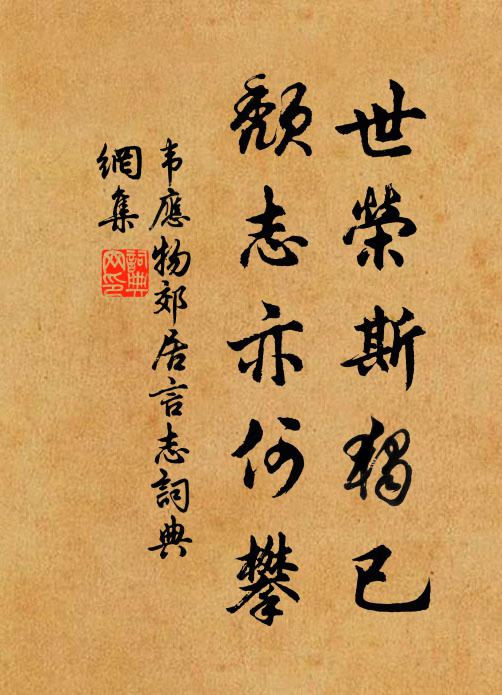 世榮斯獨已
頽志亦何攀
韦應物郊居言志詞典
網集
詞典
网印